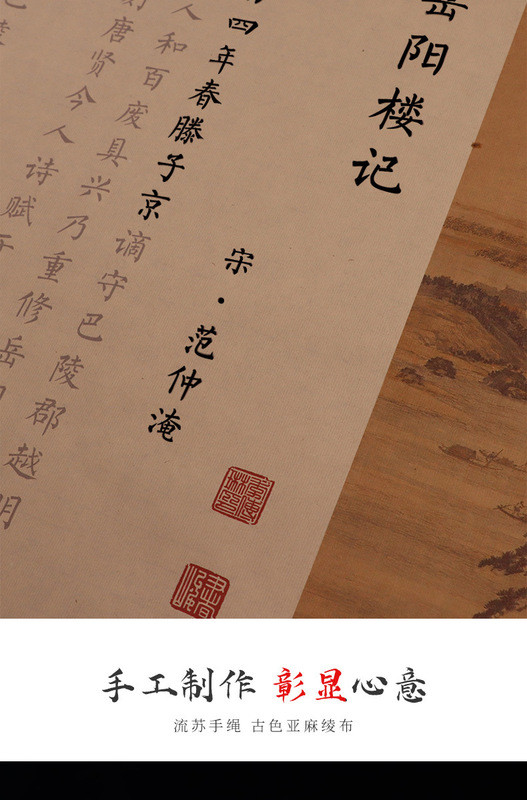 阳楼记
宋·范仲淹
四年春滕子京谪守巴陵郡越明
人和百废具兴乃重修岳
唐贤今人诗赋
手工制作 彰显心意
流苏手绳 古色亚麻绫布